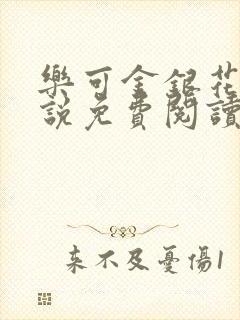 樂可金銀花
說免費閱讀
来不及憂傷1